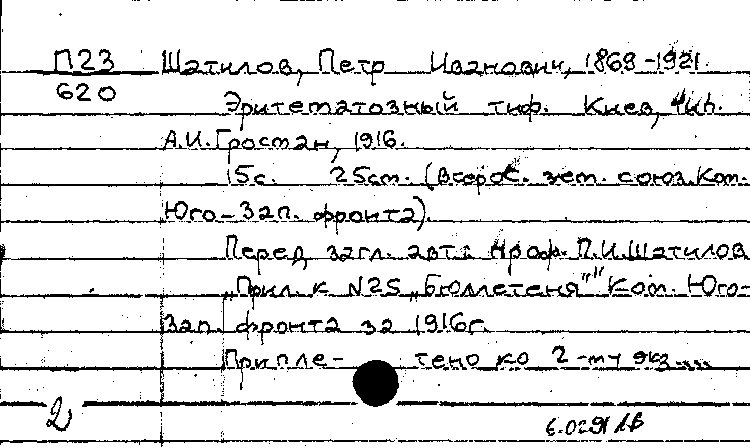 П23 Шатилов, Петр Иванович, 1869-1921.
620 Эритематозный тиф. Киев, тип.
А.И. Гросман, 1916.
15с. 25см. (Всерос. зем. союз. Ком.
Юго-Зап. фронта).
Перед загл. авт.: Проф. П.И. Шатилов
„Прил. к N25 „Бюллетеня"" Ком. Юго-
Зап. фронта за 1916г.
Припле- тено ко 2-му экз....
2)
6.02.91